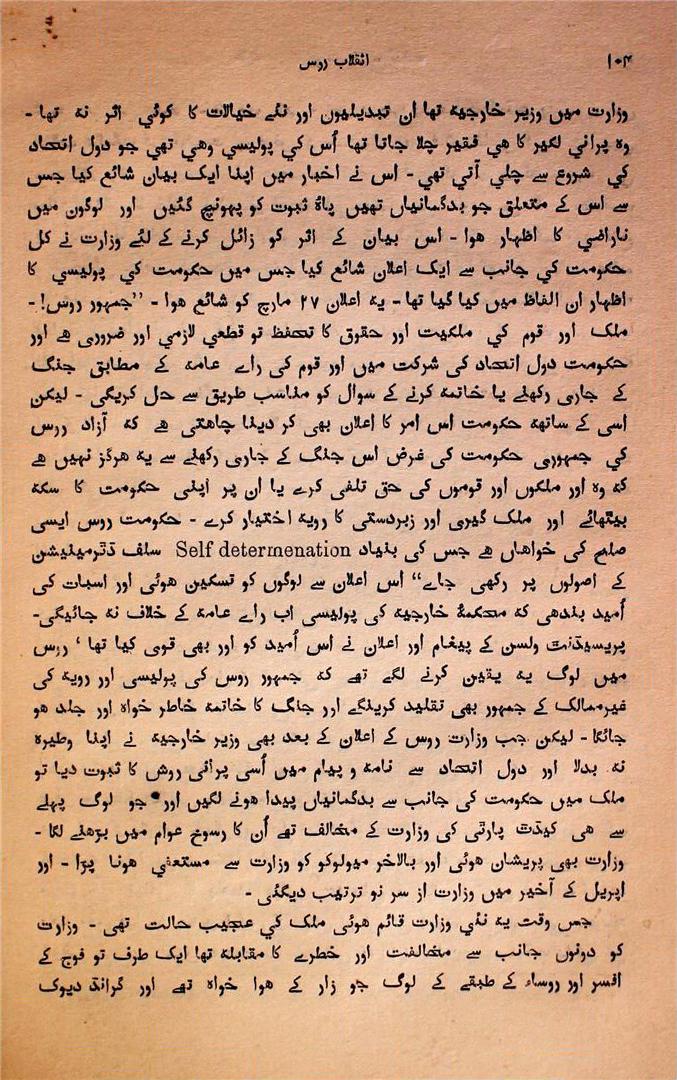 ۱۰۴ انقلاب روس
وزارت میں وزیر خارجیہ تھا ان تبدیلیوں اور نئے خیالات کا کوئي اثر نہ تھا -
وہ پرانی لکیر کا هي فقیر چلا جاتا تھا اُس کي پولیسي وهي تھی جو دول اتحاد
کي شروع سے چلی آتي تھي - اس نے اخبار میں اپنا ایک بیان شائع کیا جس
سے اس کے متعلق جو بدگمانیاں تھیں پایۂ ثبوت کو پہونچ گئیں اور لوگوں میں
ناراضي کا اظہار ہوا - اس بیان کے اثر کو زائل کرنے کے لئے وزارت نے کل
حکومت کي جانب سے ایک اعلان شائع کیا جس میں حکومت کي پولیسي کا
اظہار ان الفاظ میں کیا گیا تھا - یہ اعلان ۲۷ مارچ کو شائع ہوا - ”جمہور روس! -
ملک اور قوم کي ملکیت اور حقوق کا تحفظ تو قطعي لازمي اور ضروری ہے اور
حکومت دول اتحاد کی شرکت میں اور قوم کی راے عامہ کے مطابق جنگ
کے جاری رکھنے یا خاتمہ کرنے کے سوال کو مناسب طریق سے حل کریگی - لیکن
اسی کے ساتھ حکومت اس امر کا اعلان بھی کر دینا چاہتی ہے کہ آزاد روس
کي جمہوری حکومت کی غرض اس جنگ کے جاری رکھنے سے یہ ہرگز نہیں ہے
کہ وہ اور ملکوں اور قوموں کی حق تلفی کرے یا ان پر اپنی حکومت کا سکہ
بیٹھائے اور ملک گیری اور زبردستی کا رویہ اختیار کرے - حکومت روس ایسی
صلح کی خواہاں ہے جس کی بنیاد Self determenation سلف ڈٹرمینیشن
کے اصولوں پر رکھی جاے“ اس اعلان سے لوگوں کو تسکین ہوئی اور اسبات کی
اُمید بندھی کہ محکمۂ خارجیہ کی پولیسی اب راے عامہ کے خلاف نہ جائیگی-
پریسیڈنٹ ولسن کے پیغام اور اعلان نے اس اُمید کو اور بھی قوی کیا تھا ‘ روس
میں لوگ یہ یقین کرنے لگے تھے کہ جمہور روس کی پولیسی اور رویہ کی
غیرممالک کے جمہور بھی تقلید کرینگے اور جنگ کا خاتمہ خاطر خواہ اور جلد ہو
جائگا - لیکن جب وزارت روس کے اعلان کے بعد بھی وزیر خارجیہ نے اپنا وطیرہ
نہ بدلا اور دول اتحاد سے نامہ و پیام میں اُسی پرانی روش کا ثبوت دیا تو
ملک میں حکومت کی جانب سے بدگمانیاں پیدا ہونے لگیں اور جو لوگ پہلے
سے هی کیڈٹ پارٹی کی وزارت کے مخالف تھے اُن کا رسوخ عوام میں بڑھنے لگا -
وزارت بھی پریشان ہوئی اور بالاخر میولوکو کو وزارت سے مستعفي ہونا پڑا - اور
اپریل کے آخیر میں وزارت از سر نو ترتیب دیگئی -
جس وقت یہ نئي وزارت قائم ہوئی ملک کي عجیب حالت تھی - وزارت
کو دونوں جانب سے مخالفت اور خطرے کا مقابلہ تھا ایک طرف تو فوج کے
افسر اور روساء کے طبقے کے لوگ جو زار کے ہوا خواہ تھے اور گرانڈ دیوک